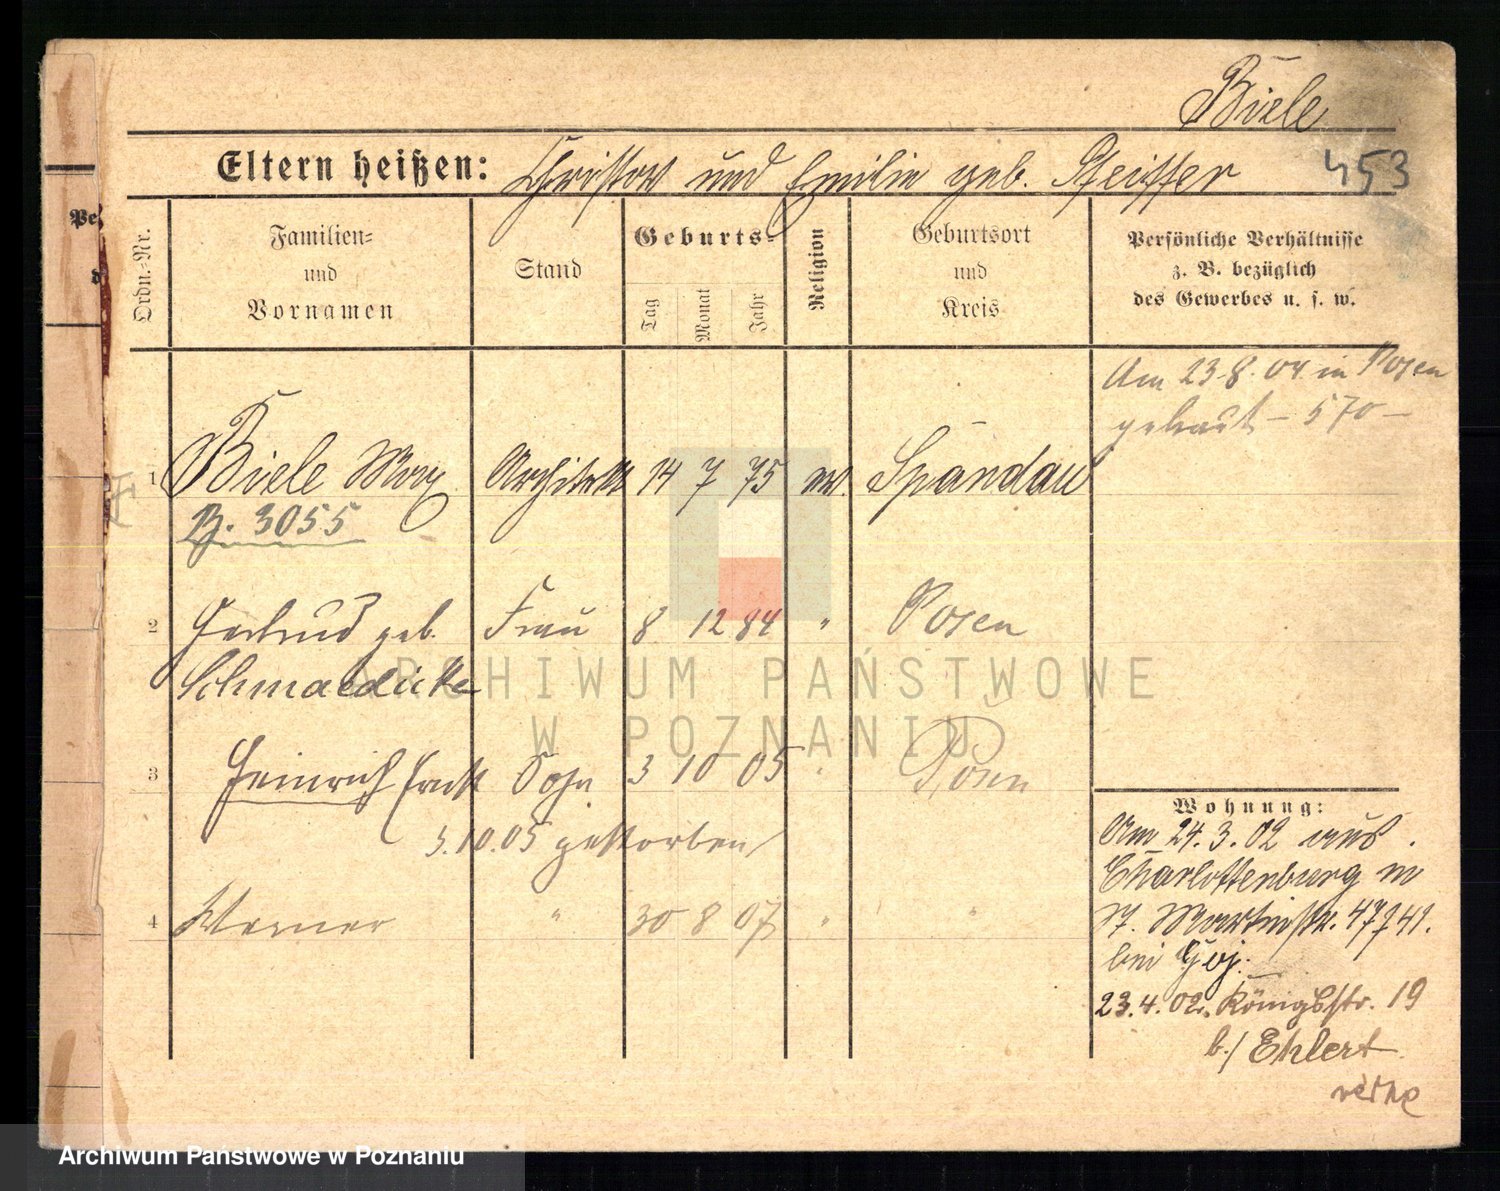 Biele
Eltern heißen: Christof und Emilie geb. Pfeiffer 453
Ordn.-Nr.
Familien-
und
Vornamen
Stand
Geburts-
Tag Monat Jahr
Religion
Geburtsort
und
Kreis
Persönliche Verhältnisse
z. B. bezüglich
des Gewerbes u. s. w.
Pe
d
Am 23.8.04 in Posen
getraut – 570 –
1 Biele Max Architekt 14 7 75 ev. Spandau
B. 3055
2 Gertrud geb. Frau 8 12 84 " Posen
Schmaedicke
3 Heinrich Ernst Sohn 3 10 05 " Posen
3.10.05 gestorben
4 Werner " 30 8 07 " "
Wohnung:
Am 24.3.02 aus
Charlottenburg
St. Martinstr. 47/49.
bei
23.4.02. Königsstr. 19
b./ Ehlert
ARCHIWUM PAŃSTWOWE
W POZNANIU
Archiwum Państwowe w Poznaniu